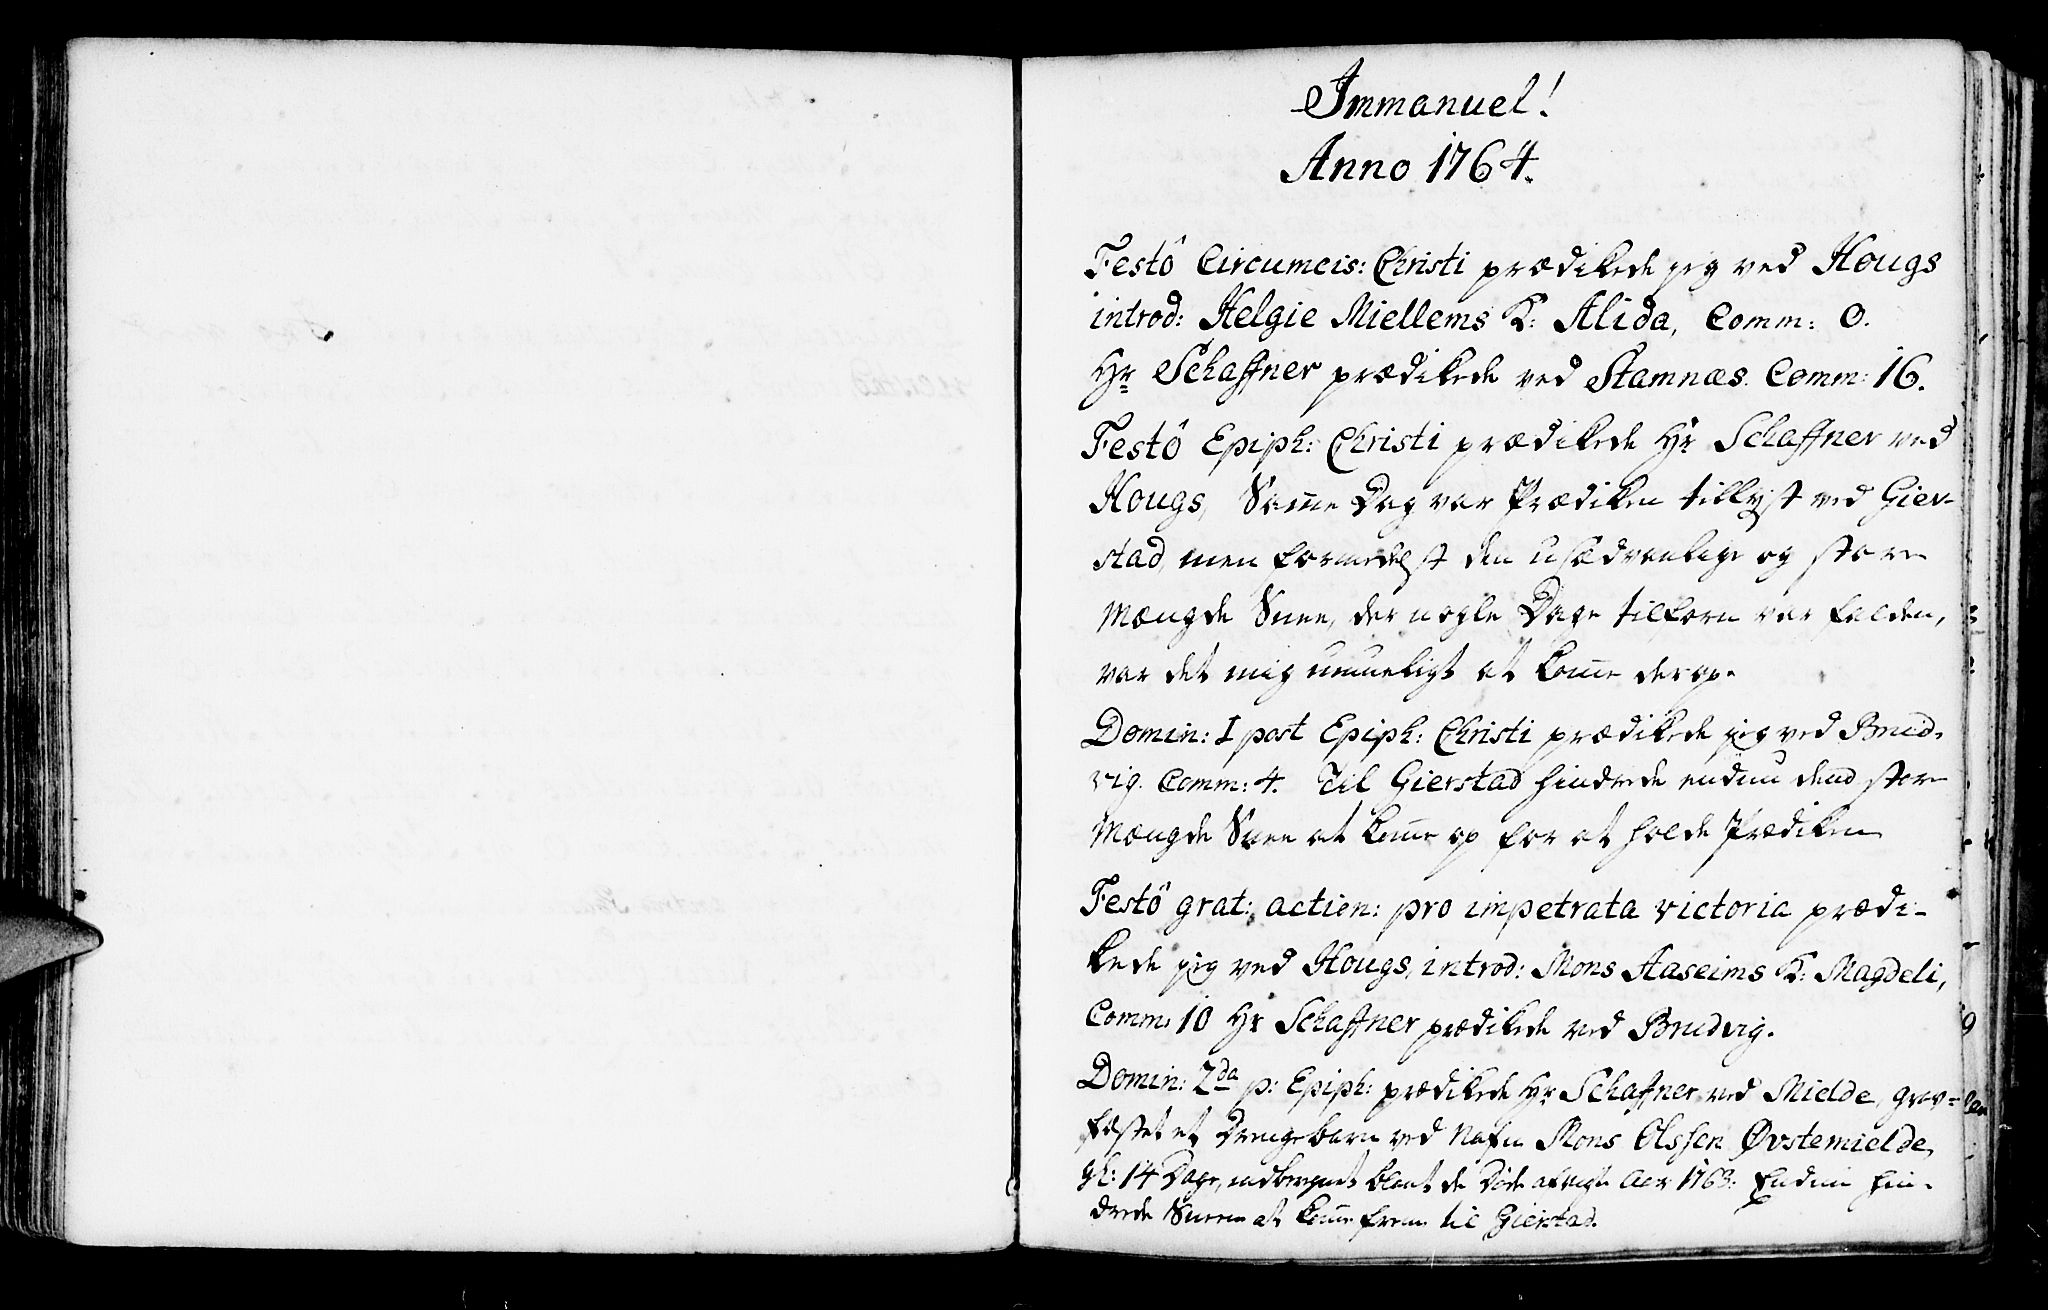 Immanuel!
Anno 1764.
Festô Circumcis: Christi prædikede jeg ved Hougs
introd: Helgie Miellems K: Alida, Comm: 0.
Hr Schaffner prædikede ved Stamnæs. Comm: 16.
Festô Epiph: Christi prædikede Hr Schaffner ved
Hougs, Samme Dag var Prædiken tillyst ved Gier-
stad, men formedelst den usædvanlige og store
Mængde Snee, der nogle Dage tilforn var falden,
var det mig umueligt at komme derop.
Domin: I post Epiph: Christi prædikede jeg ved Brud-
vig. Comm: 4. Til Gierstad hindrede endnu dend store
Mængde Snee at komme op for at holde Prædiken
Festô grat: action: pro impetrata victoria prædi-
kede jeg ved Hougs, introd: Mons Aaseims K: Magdeli,
Comm: 10 Hr Schaffner prædikede ved Brudvig.
Domin: 2da p: Epiph: prædikede Hr Schaffner ved Mielde, grav-
fæstet et Drengebarn ved Nafn Mons Olssen Øvstemielde,
gl: 14 Dage, indberegnet blant de Døde afvigte Aar 1763. Endnu hin-
drede Sneen at komme frem til Gierstad.